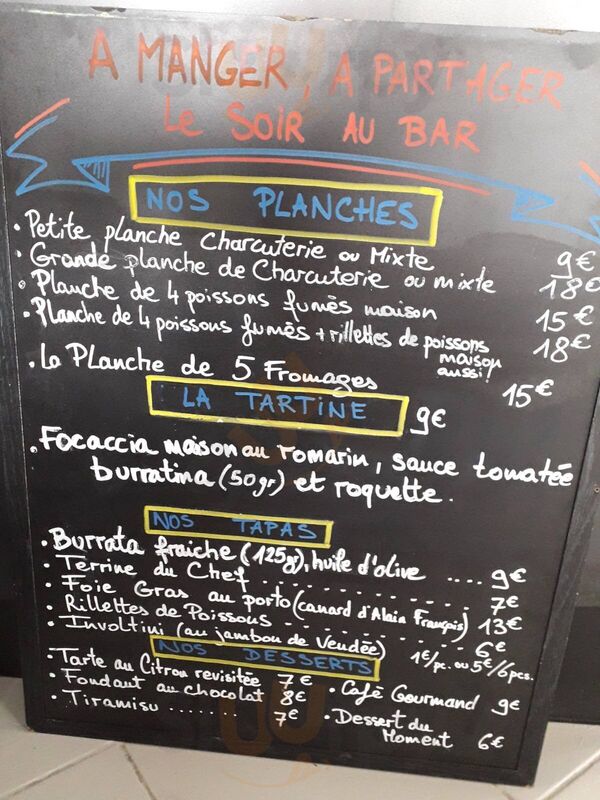 A MANGER, A PARTAGER
Le SOIR AU BAR
NOS PLANCHES
• Petite planche Charcuterie ou Mixte 9€
• Grande planche de Charcuterie ou mixte 18€
• Planche de 4 poissons fumés maison 15€
• Planche de 4 poissons fumés + rillettes de poissons 18€
maison
aussi!
• La Planche de 5 Fromages 15€
LA TARTINE 9€
• Focaccia maison au romarin, sauce tomatée
burratina (50gr) et roquette.
NOS TAPAS
• Burrata fraiche (125g), huile d'olive .... 9€
• Terrine du Chef . . . . . . . . . . . 7€
• Foie Gras au porto (canard d'Alain François) 13€
• Rillettes de Poissons . . . . . . . . . 6€
• Involtini (au jambon de Vendée) 1€/pc. ou 5€/6pcs.
NOS DESSERTS
• Tarte au Citron revisitée 7€
• Fondant au chocolat 8€
• Tiramisu ........ 7€
• Café Gourmand 9€
• Dessert du
Moment 6€